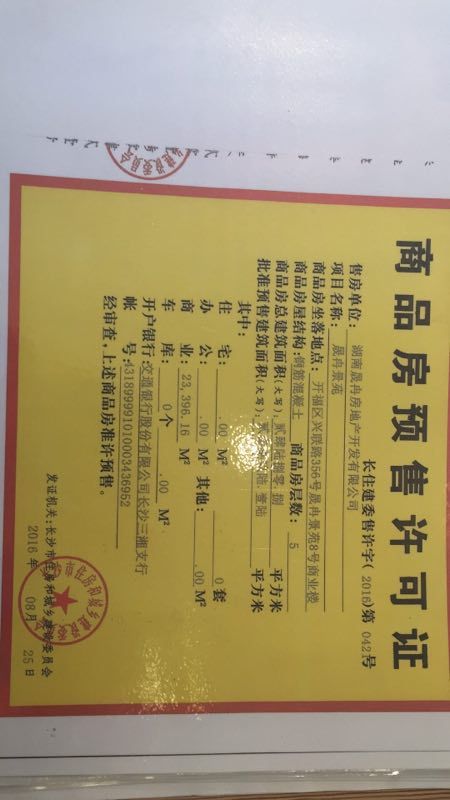 商品房预售许可证
长住建委售许字(2016)第 0421号
售房单位: 湖南晟冉房地产开发有限公司
项目名称: 晟冉景苑
商品房坐落地点: 开福区兴联路356号晟冉景苑8号商业楼
商品房屋结构: 钢筋混凝土 商品房层数: 5
商品房总建筑面积(大写): 贰肆陆捌零.捌 平方米
批准预售建筑面积(大写): 陆.壹陆 平方米
其中:
住 宅: .00 M² 0 套
办 公: .00 M² 其他: .00 M²
商 业: 23,396.16 M²
车 库: 0 个 .00 M²
开户银行: 交通银行股份有限公司长沙三湘支行
帐 号: 431899991010003436952
经审查,上述商品房准许预售。
发证机关: 长沙市住房和城乡建设委员会
2016 年 08 月 25 日